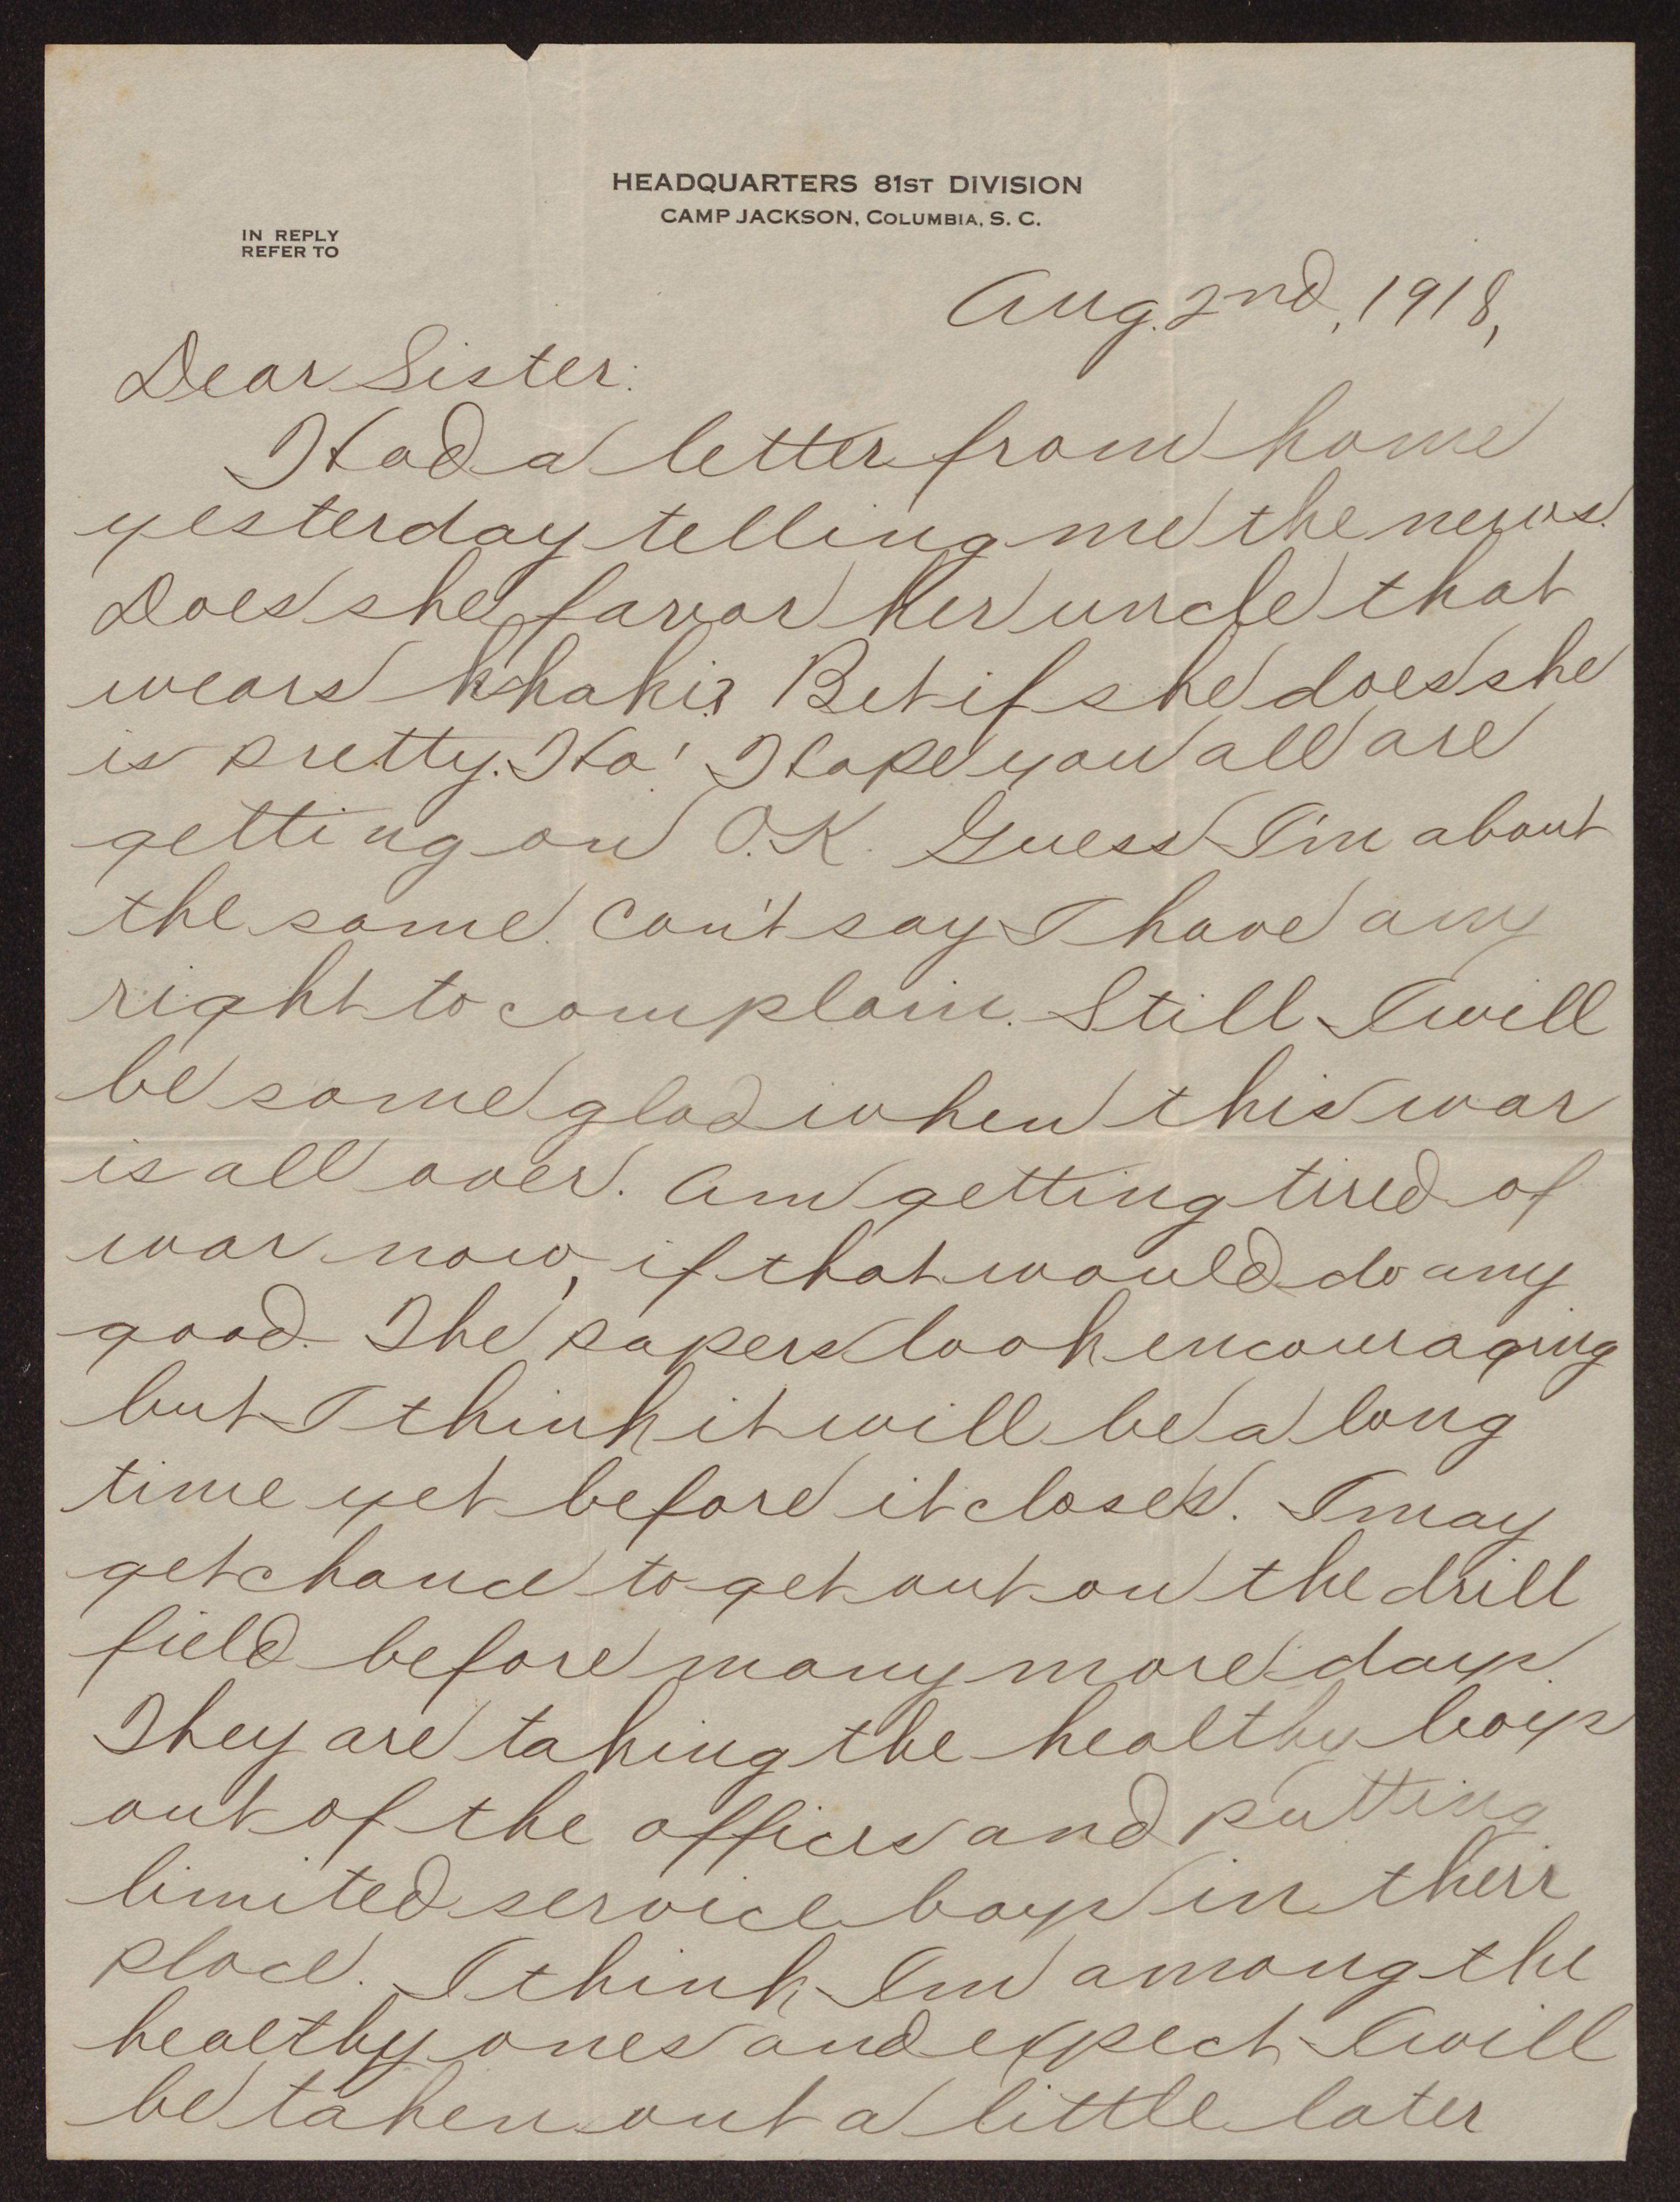 HEADQUARTERS 81ST DIVISION
CAMP JACKSON, COLUMBIA, S. C.
IN REPLY
REFER TO
Aug. 2nd, 1918,
Dear Sister:
Had a letter from home
yesterday telling me the news.
Does she favor her uncle that
wears khaki? Bet if she does she
is pretty. Ha! Hope you all are
getting on O.K. Guess I'm about
the same. Can't say I have any
right to complain. Still I will
be some glad when this war
is all over. Am getting tired of
war now, if that would do any
good. The papers look encouraging
but I think it will be a long
time yet before it closes. I may
get chance to get out on the drill
field before many more days
They are taking the healthy boys
out of the offices and putting
limited service boys in their
place. I think I'm among the
healthy ones and expect I will
be taken out a little later